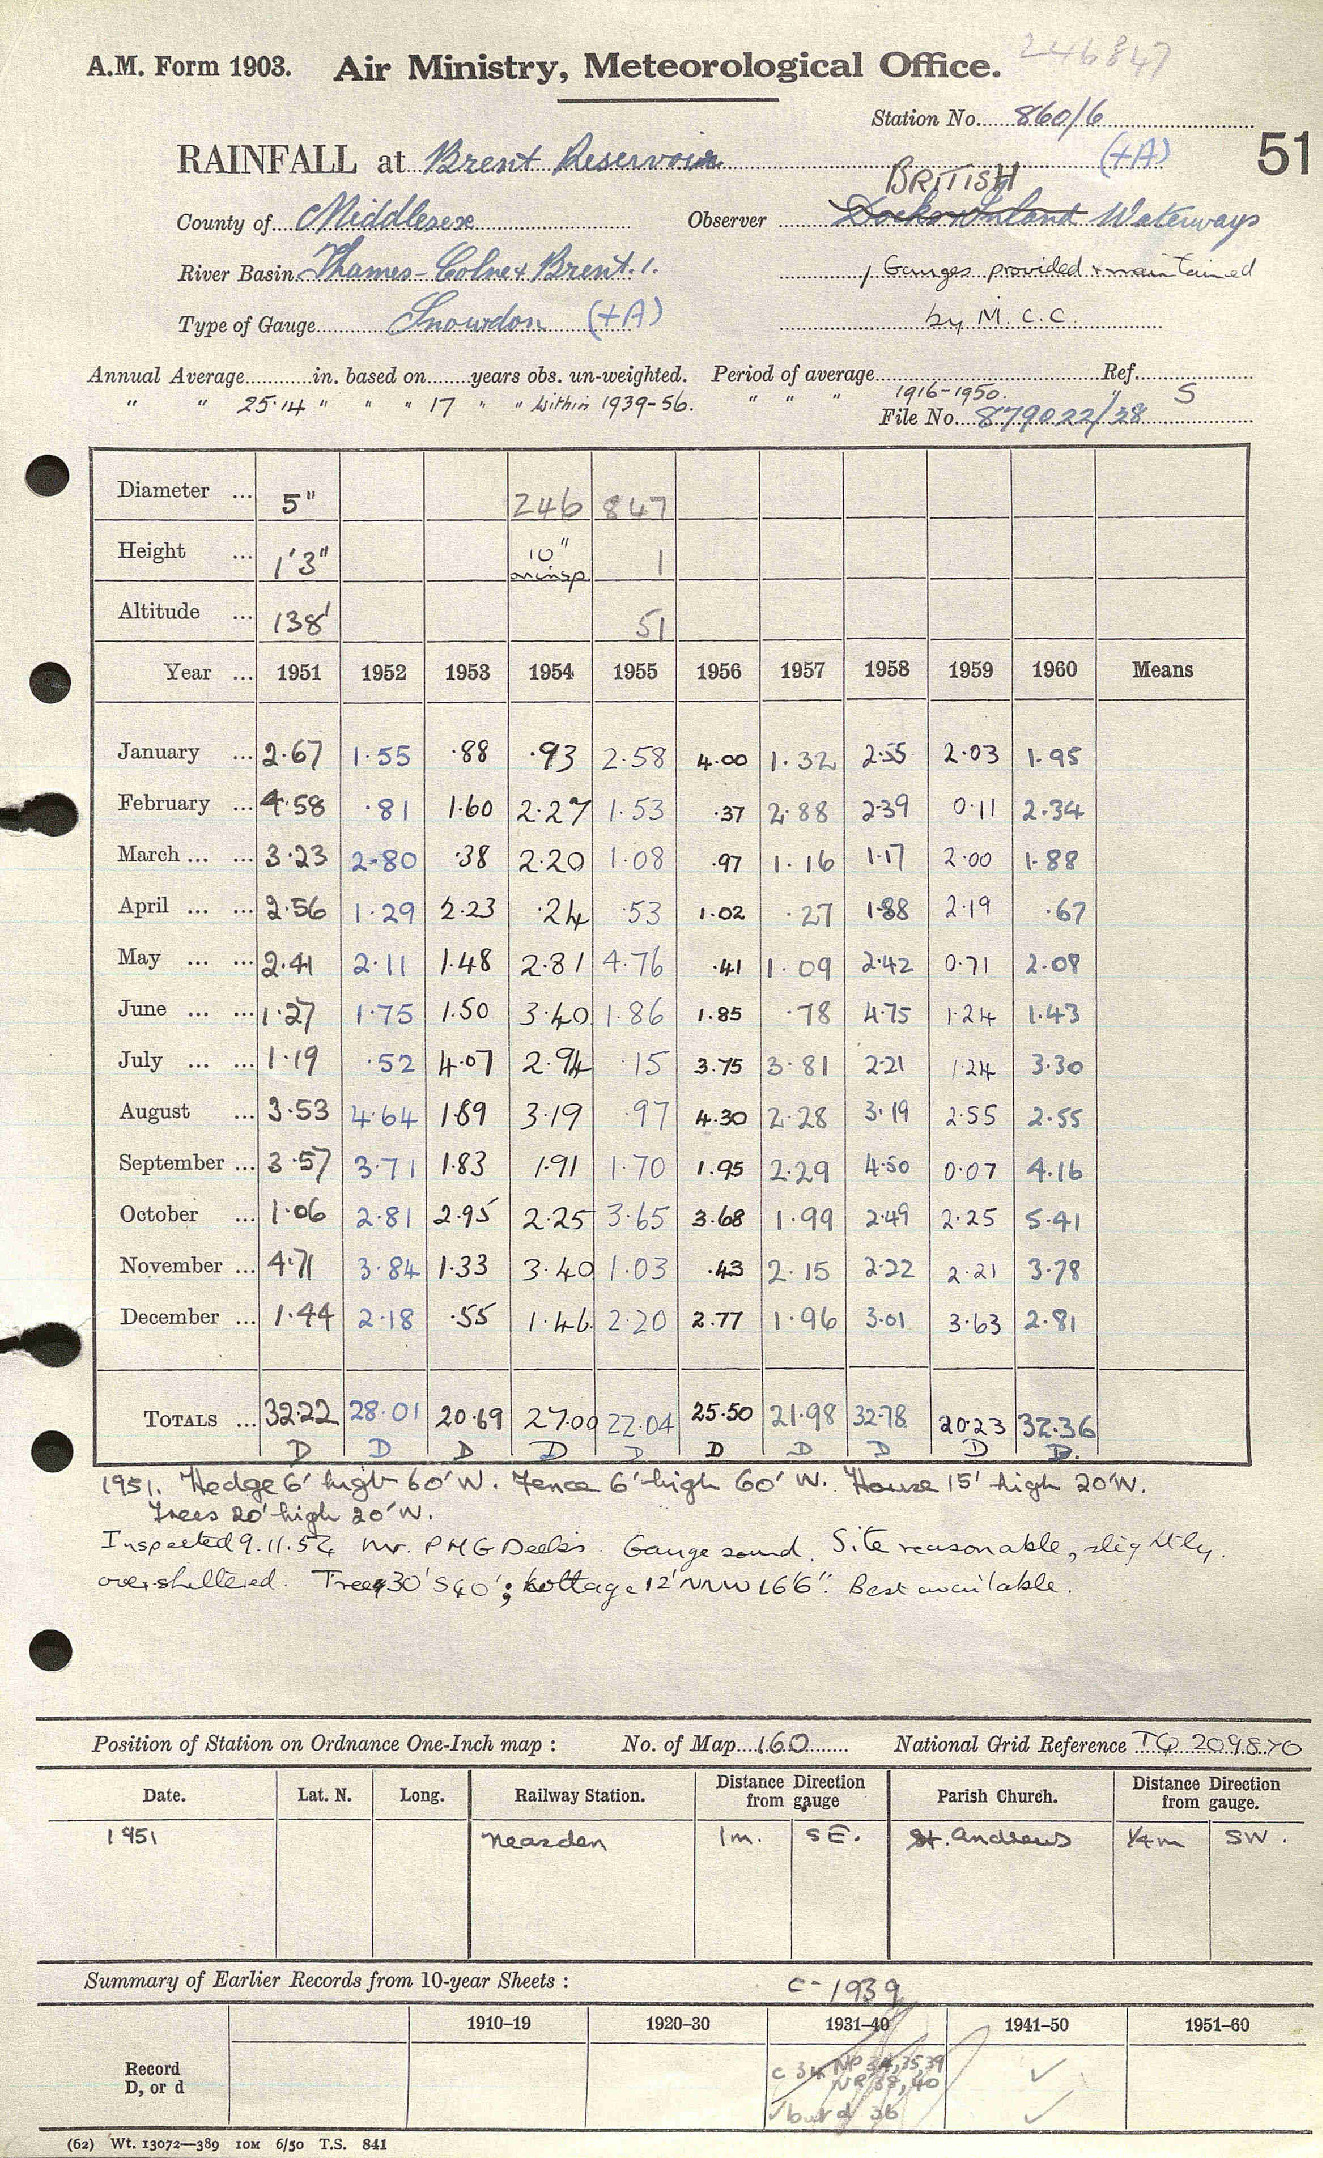 246847
A.M. Form 1903. Air Ministry, Meteorological Office.
Station No. 860/6
RAINFALL at Brent Reservoir (+A) 51
BRITISH
County of Middlesex Observer Docks & Inland Waterways
River Basin Thames-Colne & Brent. 1. Gauges provided & maintained
Type of Gauge Snowdon (+A) by M.C.C.
Annual Average in. based on years obs. un-weighted. Period of average Ref.
" " 25.14 " " " 17 " " Within 1939-56. " " " 1916-1950. " S
File No. 879022/38
Diameter ... 5" 246 847
Height ... 1'3" 10" on insp 1
Altitude ... 138' 51
Year ... 1951 1952 1953 1954 1955 1956 1957 1958 1959 1960 Means
January ... 2.67 1.55 .88 .93 2.58 4.00 1.32 2.55 2.03 1.95
February ... 4.58 .81 1.60 2.27 1.53 .37 2.88 2.39 0.11 2.34
March ... ... 3.23 2.80 .38 2.20 1.08 .97 1.16 1.17 2.00 1.88
April ... ... 2.56 1.29 2.23 .24 .53 1.02 .27 1.88 2.19 .67
May ... ... 2.41 2.11 1.48 2.81 4.76 .41 1.09 2.42 0.71 2.08
June ... ... 1.27 1.75 1.50 3.40 1.86 1.85 .78 4.75 1.24 1.43
July ... ... 1.19 .52 4.07 2.94 .15 3.75 3.81 2.21 1.24 3.30
August ... 3.53 4.64 1.89 3.19 .97 4.30 2.28 3.19 2.55 2.55
September ... 3.57 3.71 1.83 1.91 1.70 1.95 2.29 4.50 0.07 4.16
October ... 1.06 2.81 2.95 2.25 3.65 3.68 1.99 2.49 2.25 5.41
November ... 4.71 3.84 1.33 3.40 1.03 .43 2.15 2.22 2.21 3.78
December ... 1.44 2.18 .55 1.46 2.20 2.77 1.96 3.01 3.63 2.81
TOTALS ... 32.22 28.01 20.69 27.00 22.04 25.50 21.98 32.78 20.23 32.36
D D D D D D D D D D.
1951. Hedge 6' high 60' W. Fence 6' high 60' W. House 15' high 20' W.
Trees 20' high 20' W.
Inspected 9.11.54 Mr. PMG Deeks. Gauge sound. Site reasonable, slightly
oversheltered. Trees 30' S 40'; cottage 12' NNW 16'6". Best available.
Position of Station on Ordnance One-Inch map : No. of Map 160 National Grid Reference TQ 209870
Date. Lat. N. Long. Railway Station. Distance Direction from gauge Parish Church. Distance Direction from gauge.
1951 Neasden 1m. SE. St. Andrews 1/4m SW.
Summary of Earlier Records from 10-year Sheets : C- 1939
1910–19 1920–30 1931–40 1941–50 1951–60
Record c 34 NP 34,35,39 ✓
D, or d NR 38,40
✓ but d 36 ✓
(62) Wt. 13072—389 10M 6/50 T.S. 841